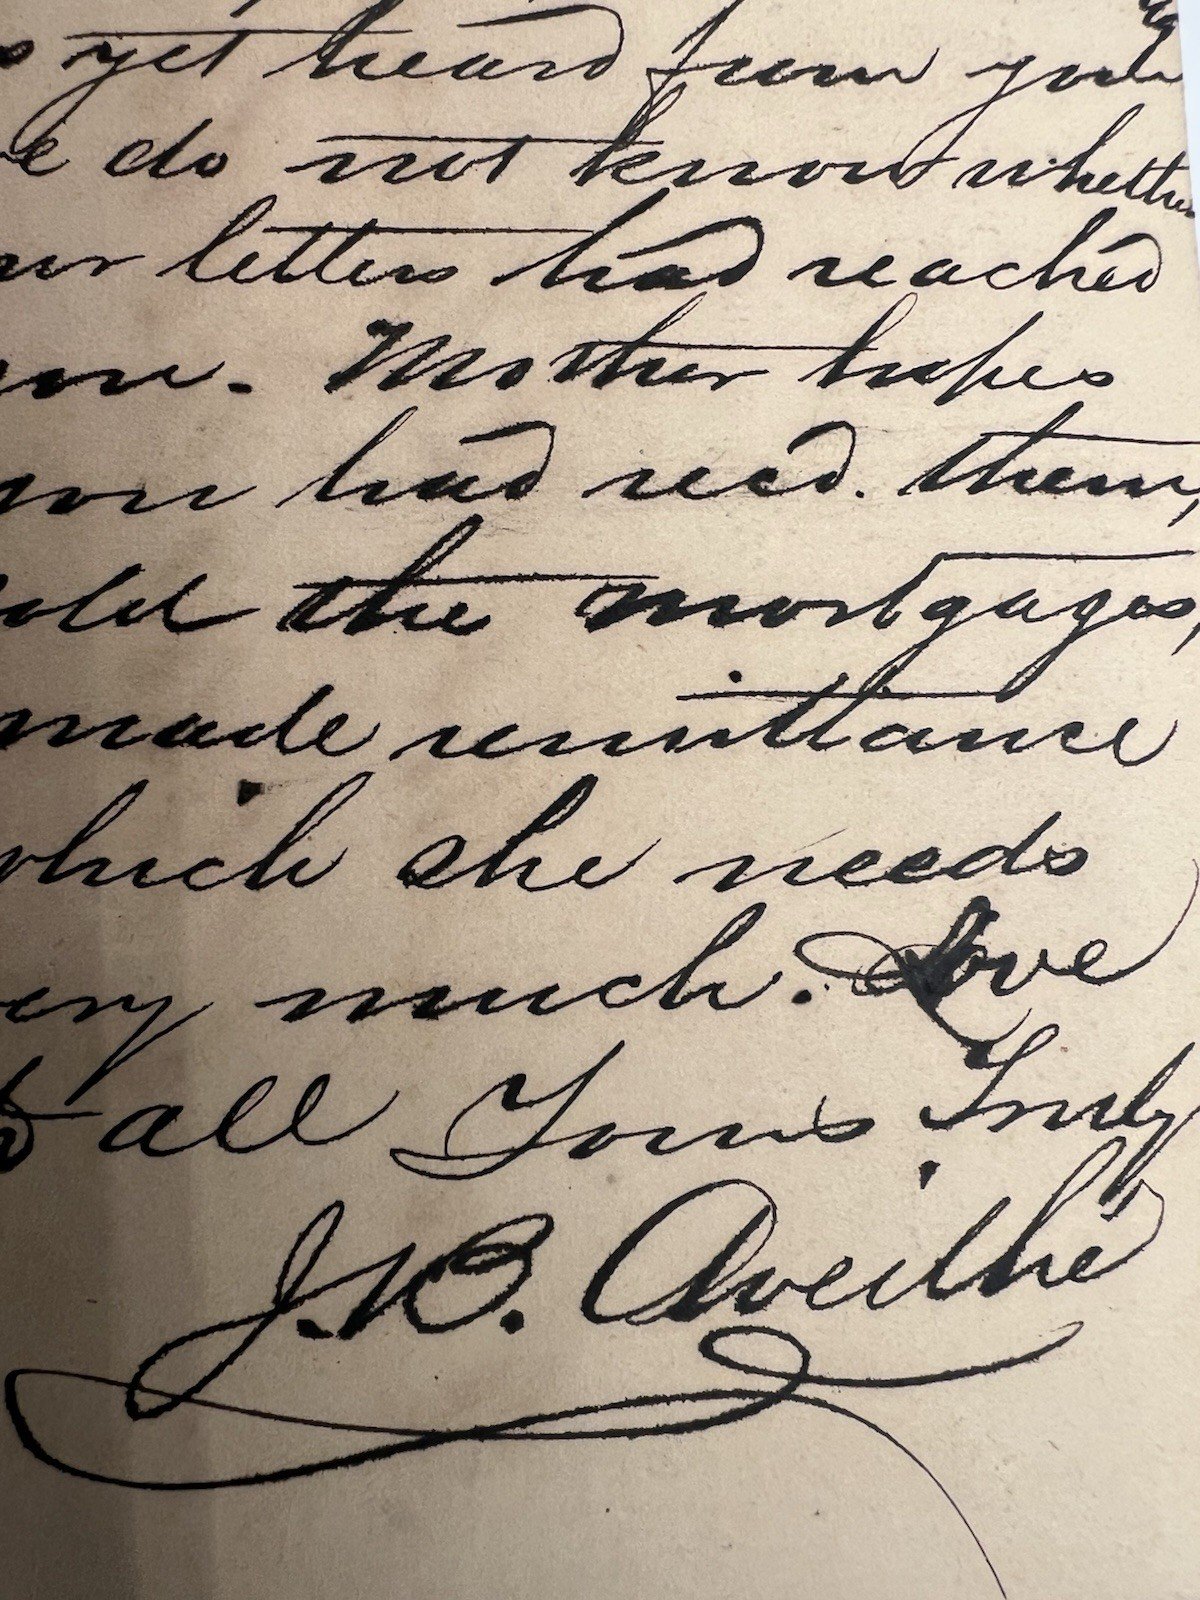 yet heard from you
do not know whether
letters had reached
you. Mother hopes
you had rec'd. them,
sold the mortgages,
made remittance
which she needs
very much. Love
to all Yours Truly
J.B. Aveilhé